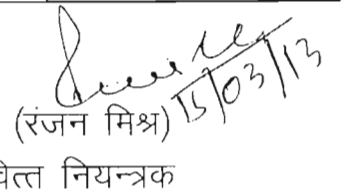 15/03/13
(रंजन मिश्र)
वित्त नियन्त्रक